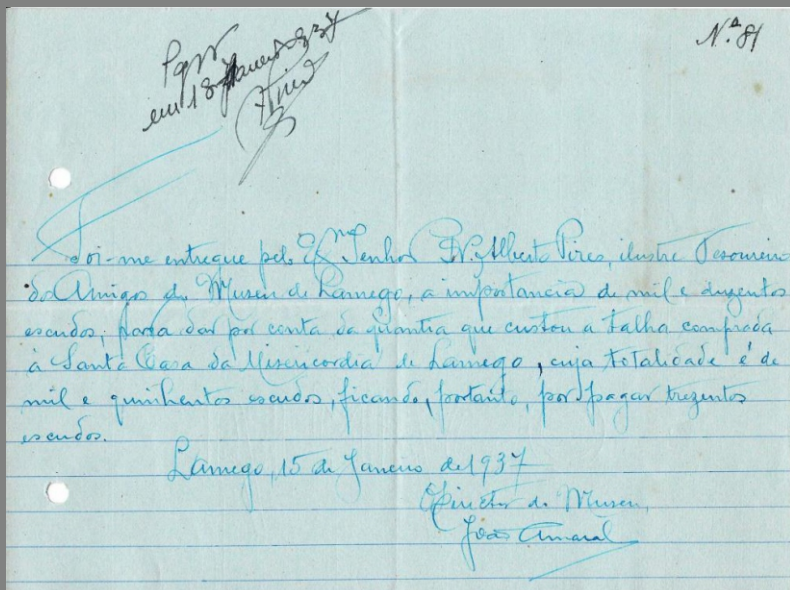 Nº 81
Pago
em 18 Janeiro 937
Foi-me entregue pelo Exmo Senhor Dr. Alberto Pires, ilustre Tesoureiro
dos Amigos do Museu de Lamego, a importancia de mil e duzentos
escudos, para dar por conta da quantia que custou a talha comprada
à Santa Casa da Misericordia de Lamego, cuja totalidade é de
mil e quinhentos escudos, ficando, portanto, por pagar trezentos
escudos.
Lamego, 15 de Janeiro de 1937
O Director do Museu,
João Amaral